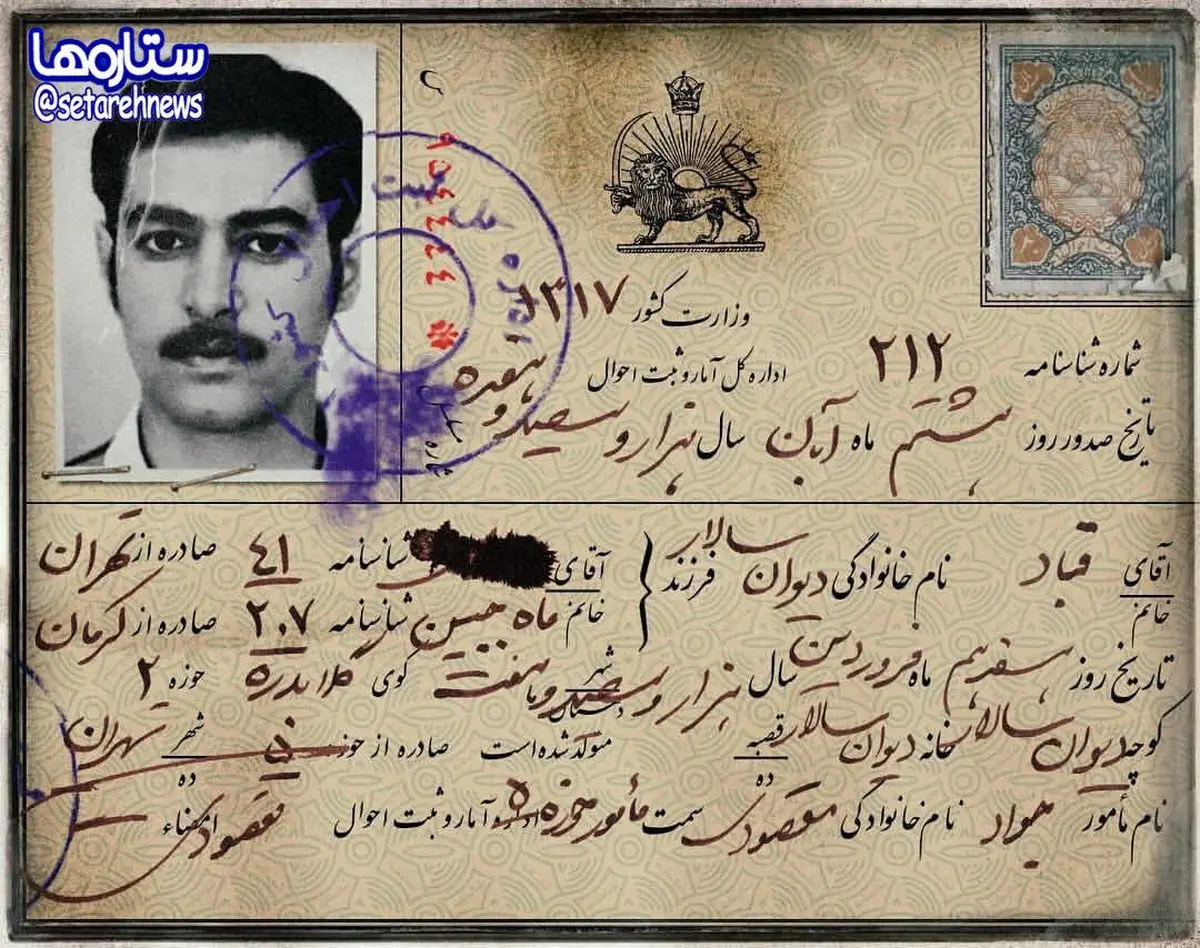 ستاره‌ها
@setarehnews
۱۳۱۷
وزارت کشور
شماره شناسنامه ۲۱۲
اداره کل آمار و ثبت احوال
تاریخ صدور روز هشتم ماه آبان سال هزار و سیصد و هفده
آقای خانم قباد نام خانوادگی دیوان سالار فرزند آقای شناسنامه ٤١ صادره از تهران
خانم ماه جبین شناسنامه ۲۰۷ صادره از کرمان
تاریخ روز هفدهم ماه فروردین سال هزار و سیصد و هفت شهر کوی گلابدره حوزه ۲
کوچه دیوان سالار خانه دیوان سالار قصبه ده متولد شده است صادره از حوزه ۵ شهر ده تهران
نام مأمور جواد نام خانوادگی مقصودی سمت مأمور حوزه ۵ اداره آمار و ثبت احوال امضاء مقصودی